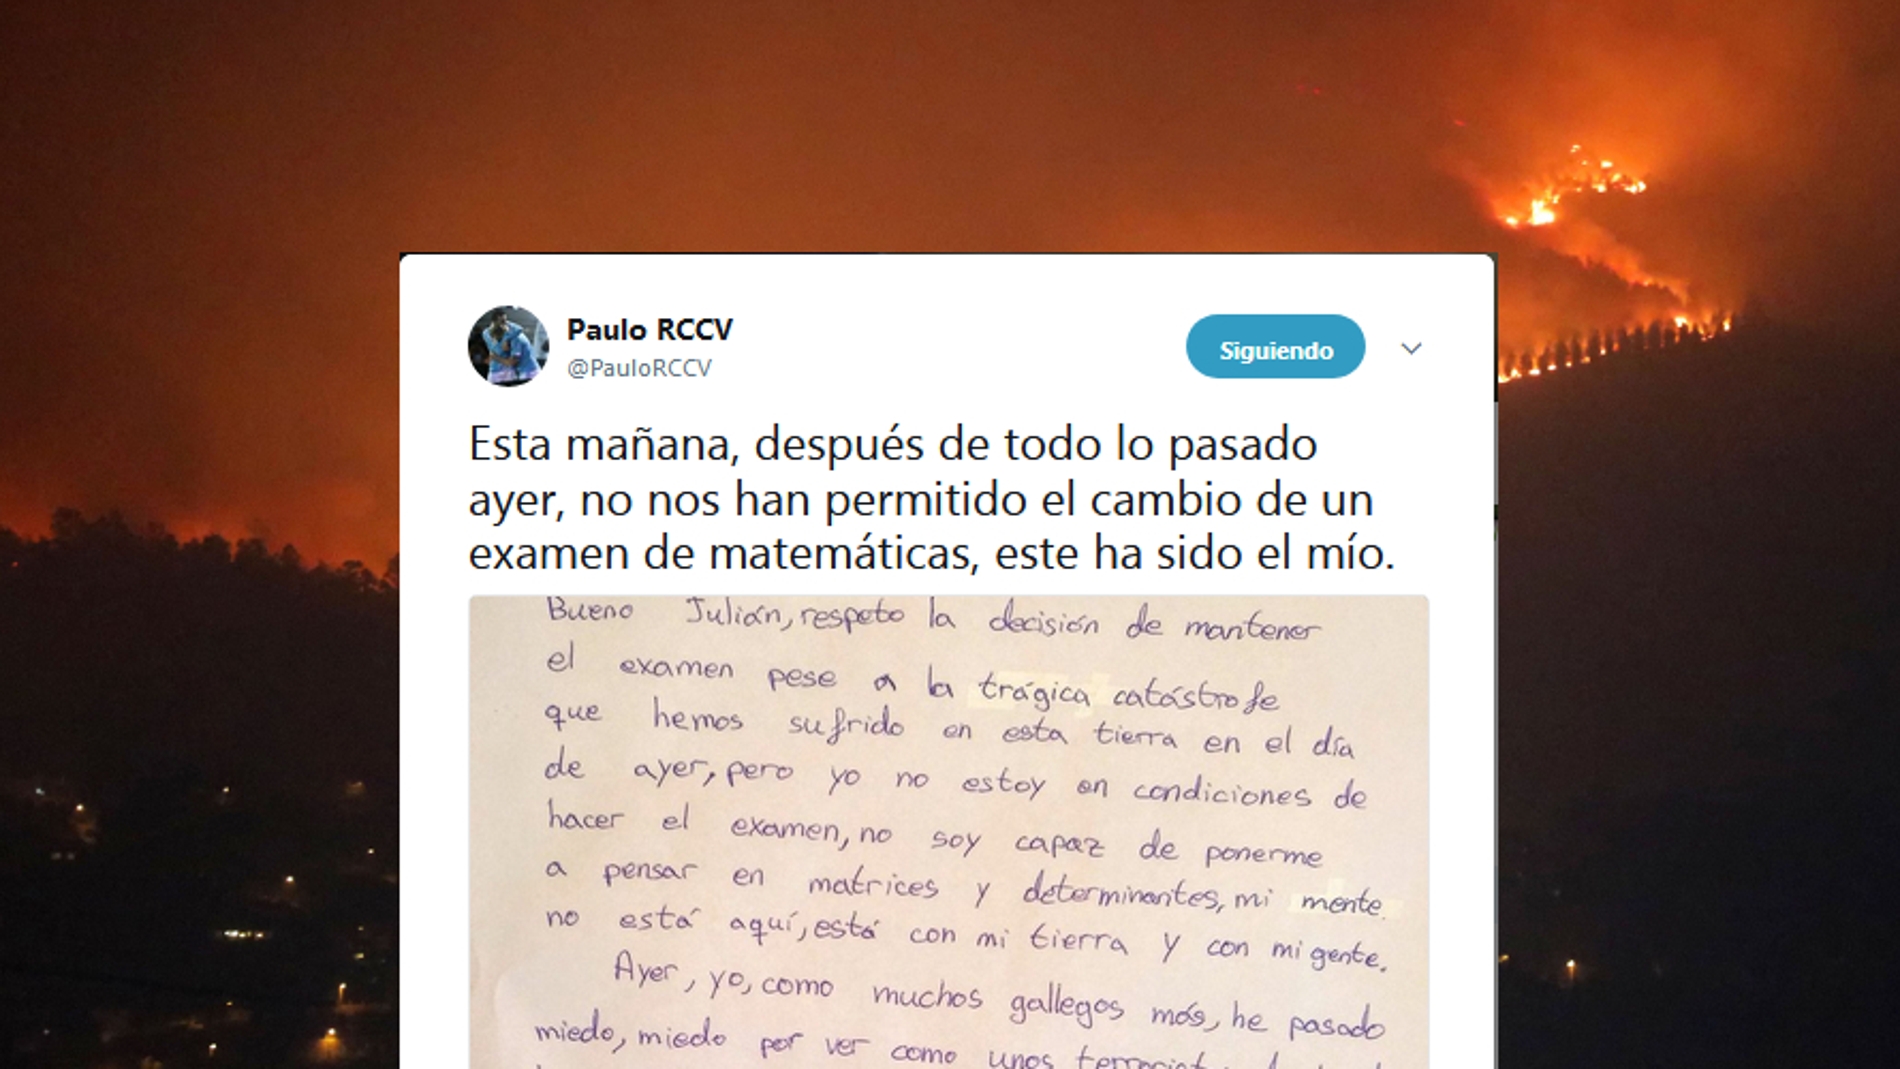 Paulo RCCV
@PauloRCCV
Siguiendo
Esta mañana, después de todo lo pasado
ayer, no nos han permitido el cambio de un
examen de matemáticas, este ha sido el mío.
Bueno Julián, respeto la decisión de mantener
el examen pese a la trágica catástrofe
que hemos sufrido en esta tierra en el día
de ayer, pero yo no estoy en condiciones de
hacer el examen, no soy capaz de ponerme
a pensar en matrices y determinantes, mi mente
no está aquí, está con mi tierra y con mi gente.
Ayer, yo, como muchos gallegos más, he pasado
miedo, miedo por ver como unos